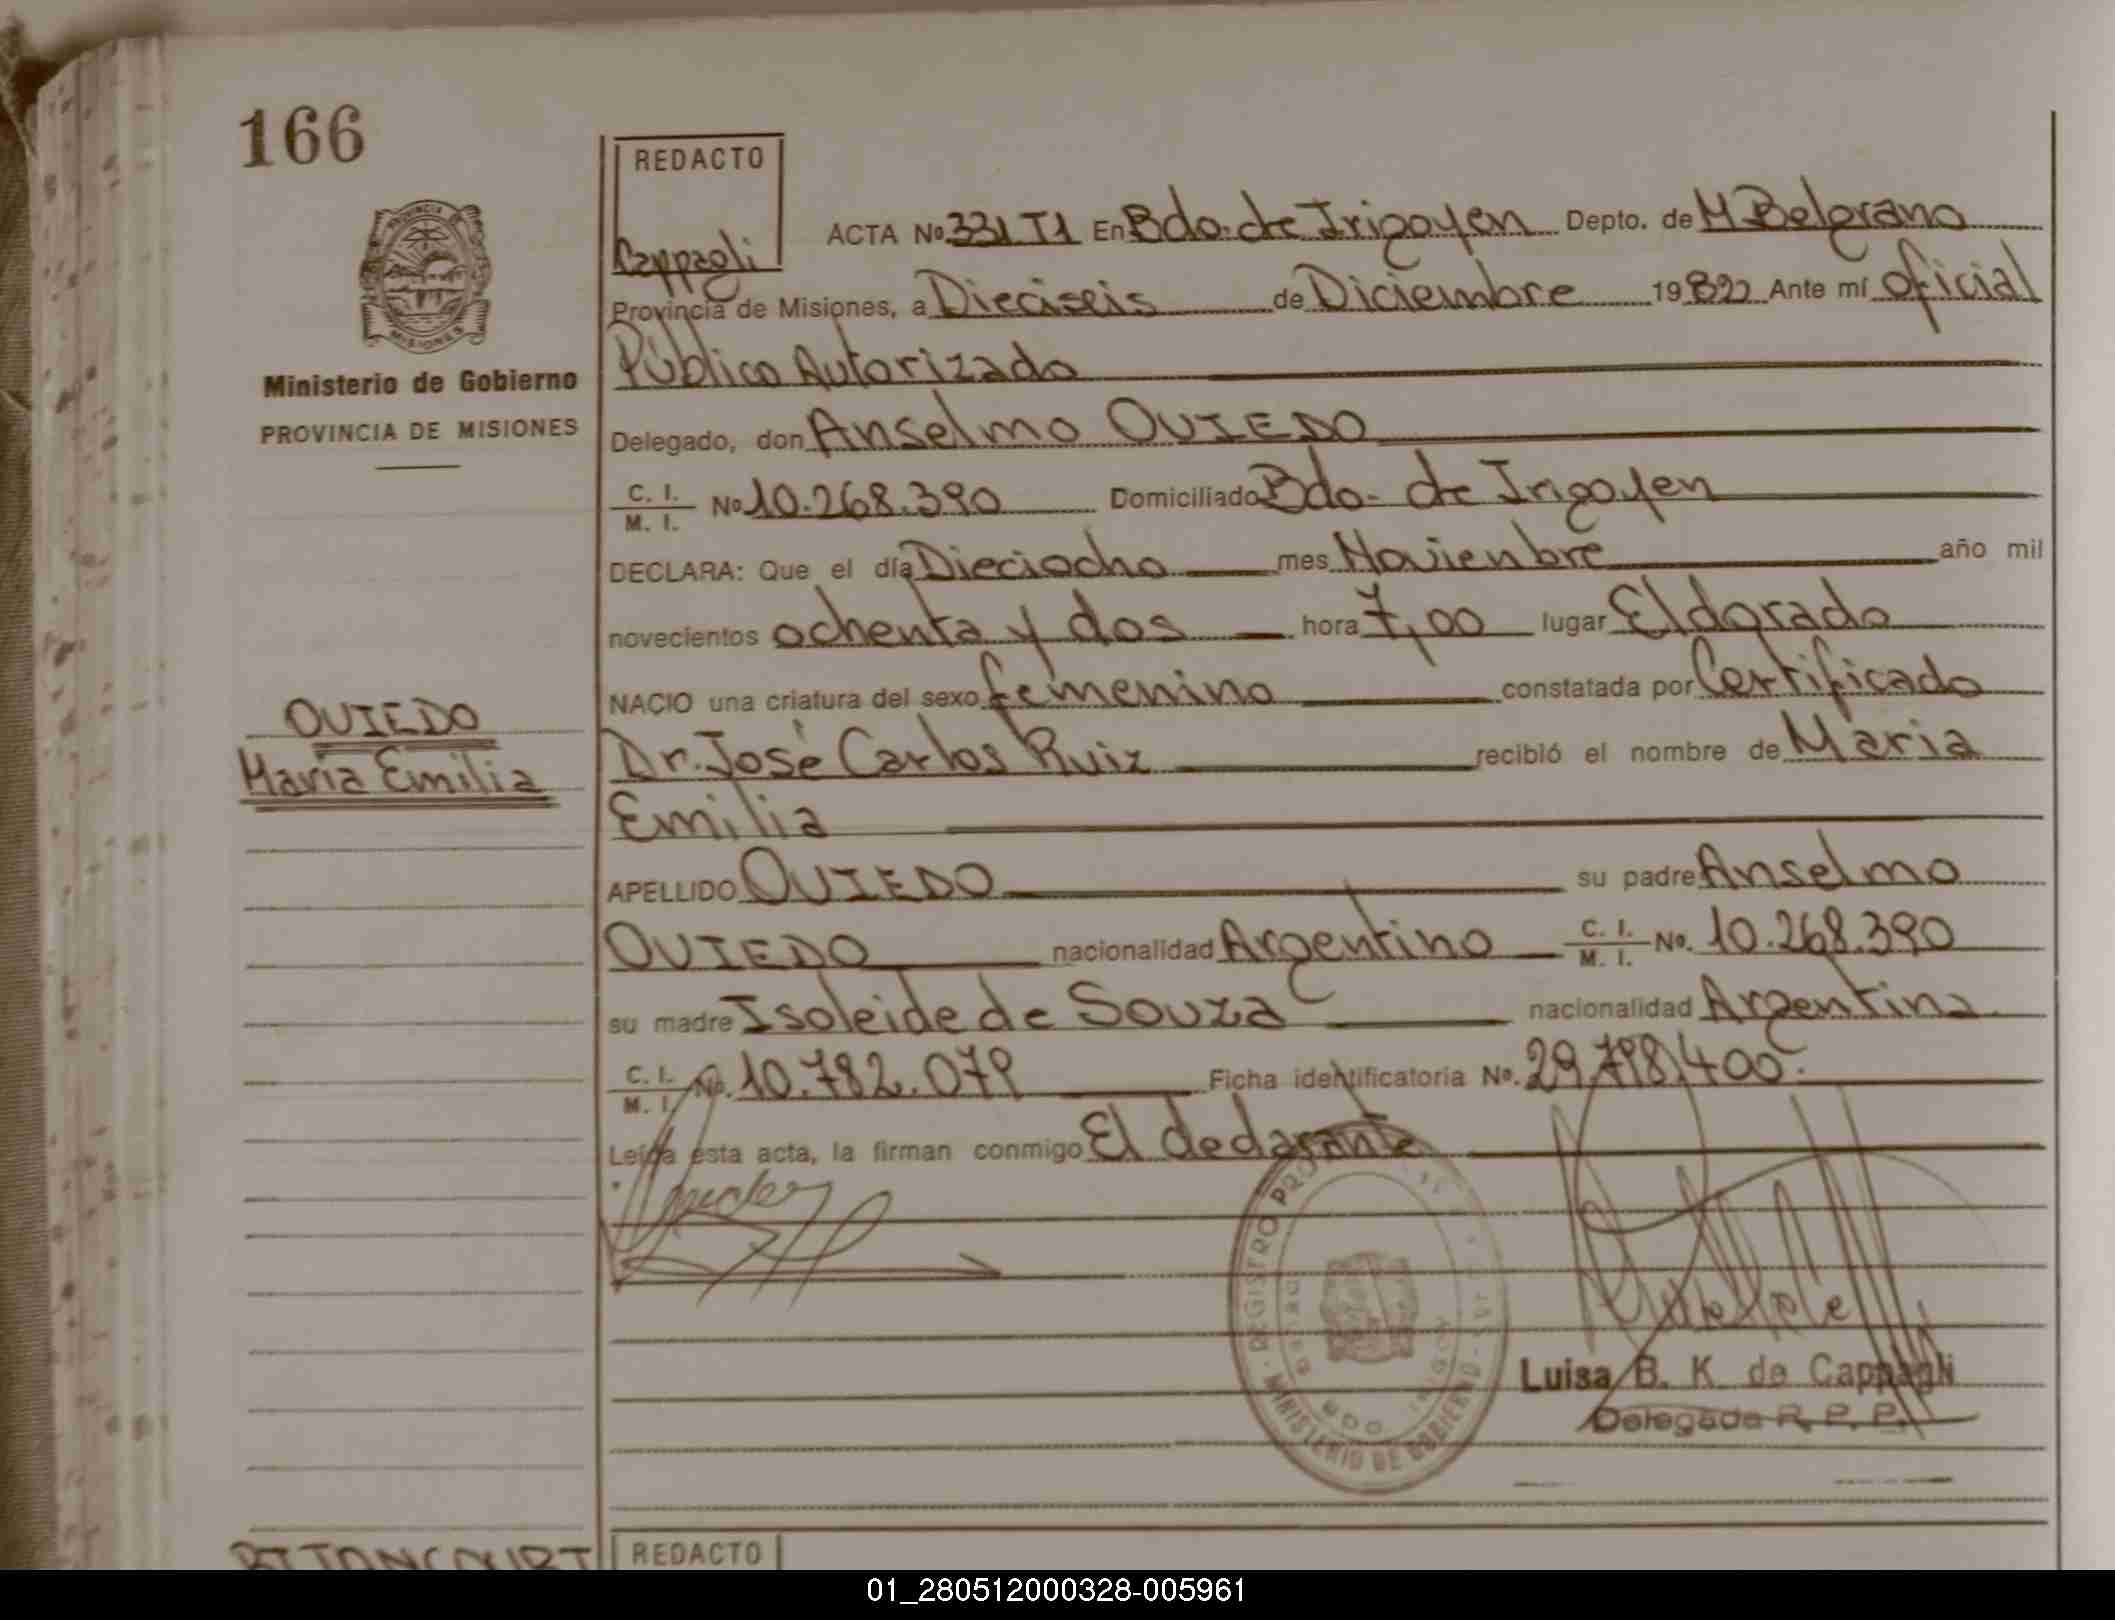 166
REDACTO
Cappagli
ACTA Nº 331 T1 En Bdo. de Irigoyen Depto. de M Belgrano
Provincia de Misiones, a Dieciseis de Diciembre 1982 Ante mí oficial
Público Autorizado
Delegado, don Anselmo OVIEDO
C. I.
M. I.
Nº 10.268.390 Domiciliado Bdo. de Irigoyen
DECLARA: Que el día Dieciocho mes Noviembre año mil
novecientos ochenta y dos hora 7,00 lugar Eldorado
NACIO una criatura del sexo femenino constatada por Certificado
Dr. José Carlos Ruiz recibió el nombre de Maria
Emilia
APELLIDO OVIEDO su padre Anselmo
OVIEDO nacionalidad Argentino C. I. M. I. Nº. 10.268.390
su madre Isoleide de Souza nacionalidad Argentina
C. I. M. I. Nº. 10.782.079 Ficha identificatoria Nº. 29.798.400.
Leída esta acta, la firman conmigo El declarante
PROVINCIA DE
MISIONES
Ministerio de Gobierno
PROVINCIA DE MISIONES
OVIEDO
Maria Emilia
REGISTRO
MINISTERIO DE GOBIERNO
Luisa B. K de Cappagli
Delegada R. P. P.
BITTANCOURT
REDACTO
01_280512000328-005961